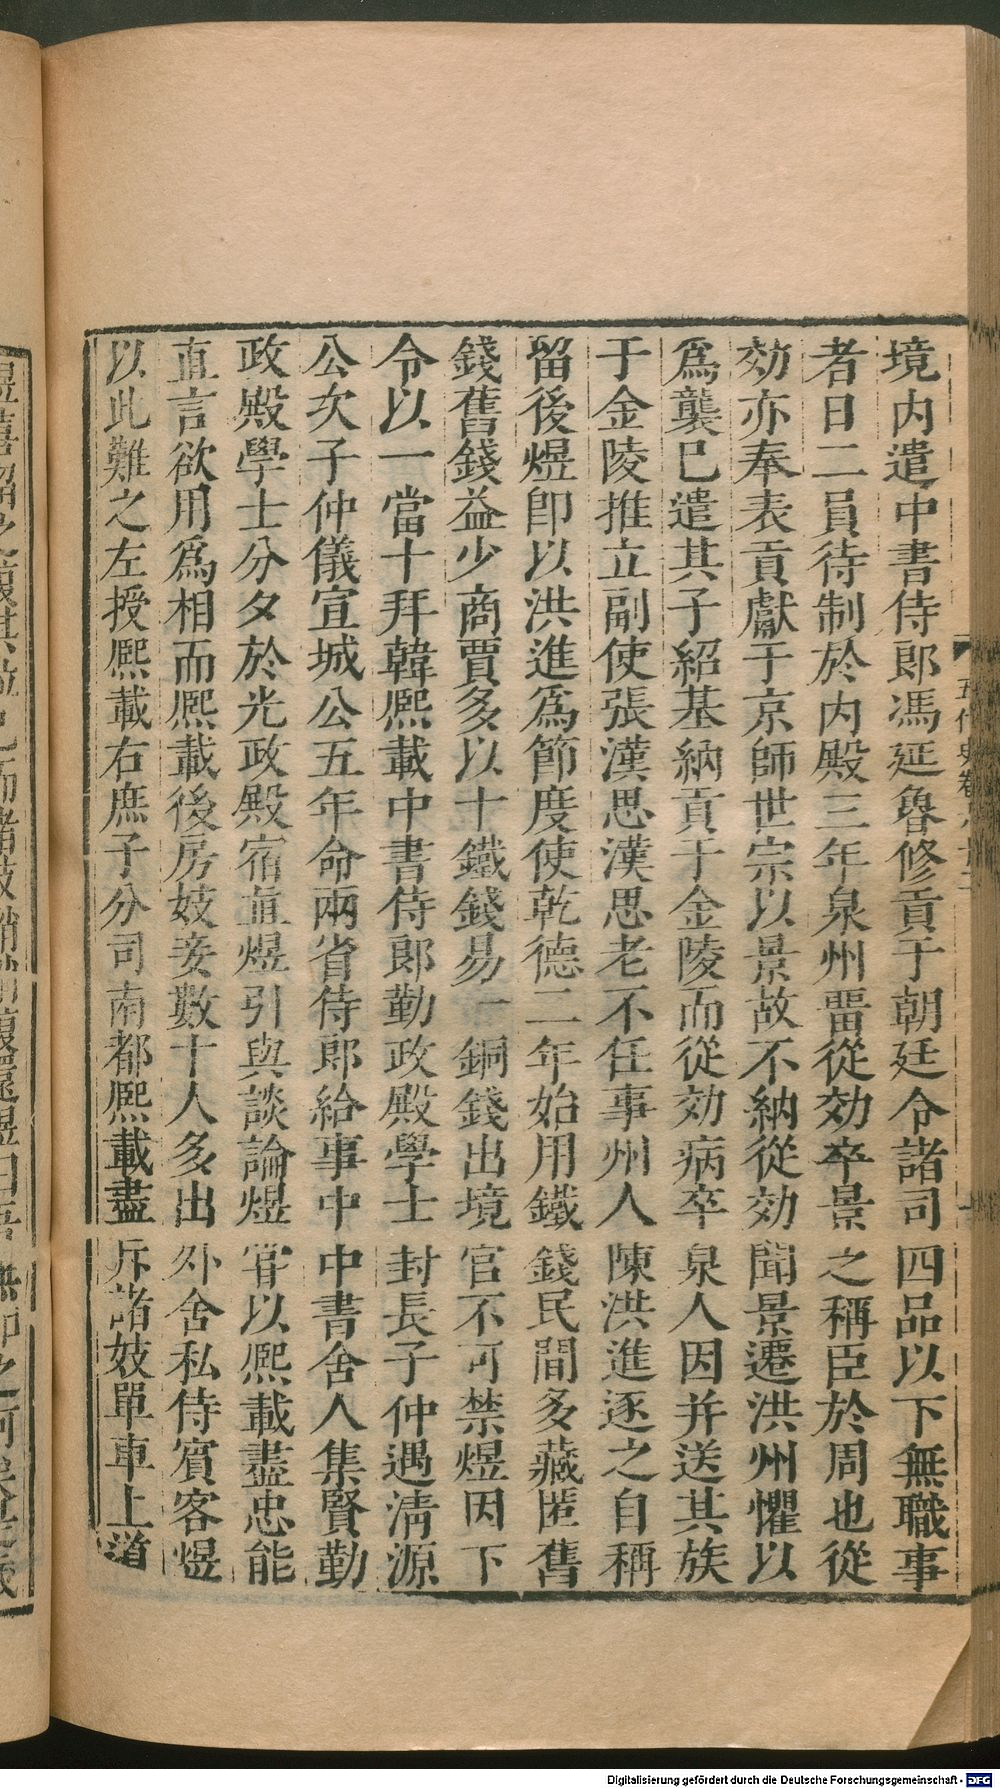 境內遣中書侍郎馮延魯修貢于朝廷令諸司四品以下無職事
者日二員待制於內殿三年泉州畱從効卒景之稱臣於周也從
効亦奉表貢獻于京師世宗以景故不納從効聞景遷洪州懼以
爲襲已遣其子紹基納貢于金陵而從効病卒泉人因并送其族
于金陵推立副使張漢思漢思老不任事州人陳洪進逐之自稱
留後煜卽以洪進爲節度使乾德二年始用鐵錢民間多藏匿舊
錢舊錢益少商賈多以十鐵錢易一銅錢出境官不可禁煜因下
令以一當十拜韓熙載中書侍郎勤政殿學士封長子仲遇淸源
公次子仲儀宣城公五年命兩省侍郎給事中中書舍人集賢勤
政殿學士分夕於光政殿宿直煜引與談論煜嘗以熙載盡忠能
直言欲用爲相而熙載後房妓妾數十人多出外舍私侍賓客煜
以此難之左授熙載右庶子分司南都熙載盡斥諸妓單車上道
五代史卷六十二
Digitalisierung gefördert durch die Deutsche Forschungsgemeinschaft - DFG